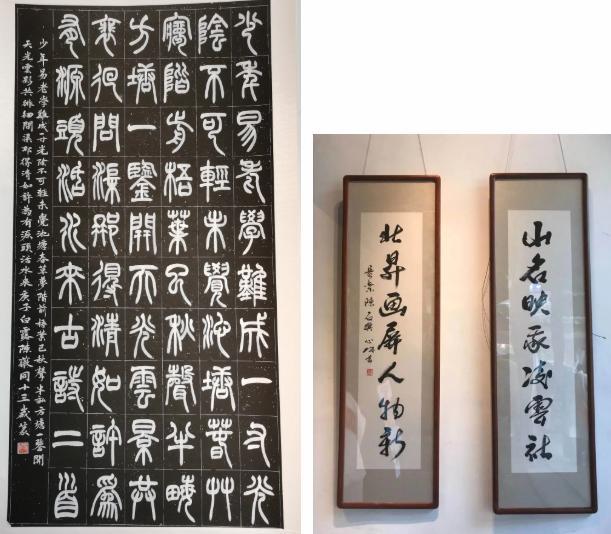 少年易老學難成一寸光
陰不可輕未覺池塘春艸
夢階前梧葉已秋聲半畝
方塘一鑒開天光雲景共
裵回問渠那得清如許為
有源頭活水來古詩二首
少年易老學難成寸光陰不可輕未覺池塘春草夢階前梧葉已秋聲半畝方塘一鑒開
天光雲影共徘徊問渠那得清如許為有源頭活水來庚子白露陳敬同十三歲篆
山名映承凌雲社
北昇画屏人物新